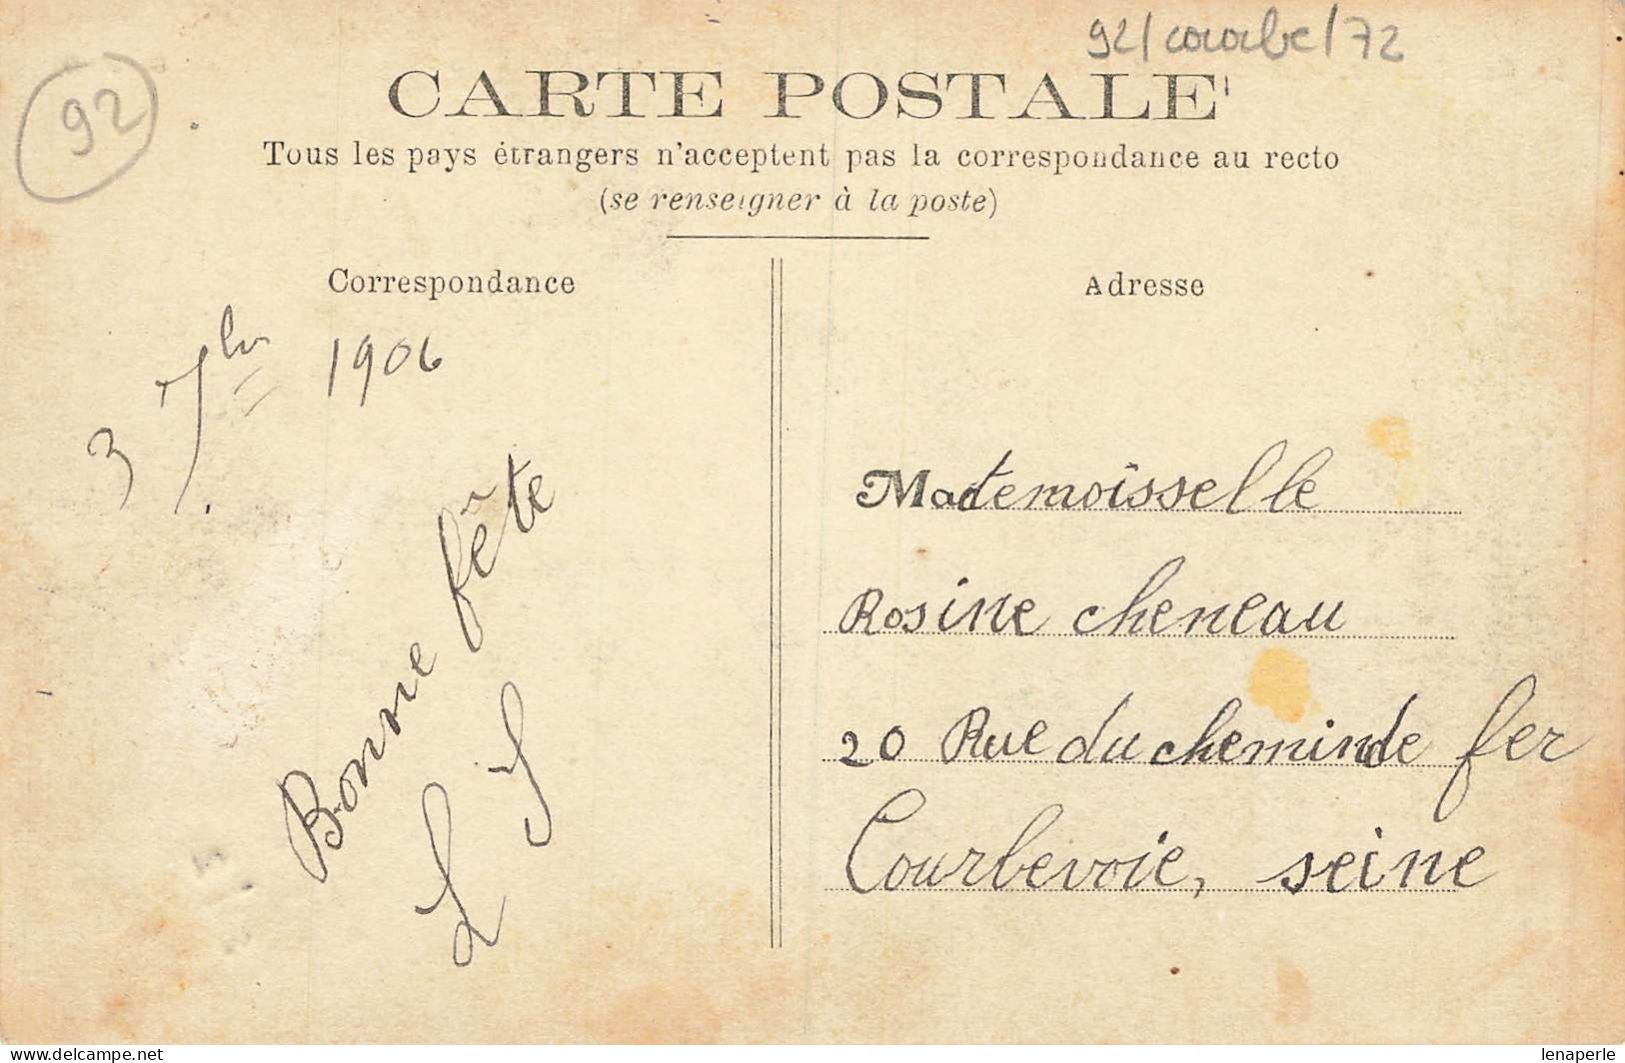 92/courbe/72
92
CARTE POSTALE
Tous les pays étrangers n'acceptent pas la correspondance au recto
(se renseigner à la poste)
Correspondance
3 7bre 1906
Bonne fête
L S
Adresse
Mademoisselle
Rosine cheneau
20 Rue du chemin de fer
Courbevoie, seine
delcampe.net
lenaperle